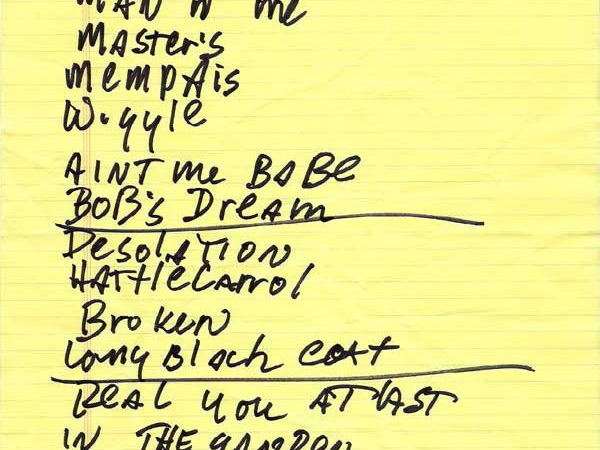 MAN N me
Master's
MempAis
Wiggle
AINT me BABe
BoB's Dream
DesolATION
HATTIeCarrol
BroKeN
Long Black coat
ReAL you AT LAST
IN THE GARDEN